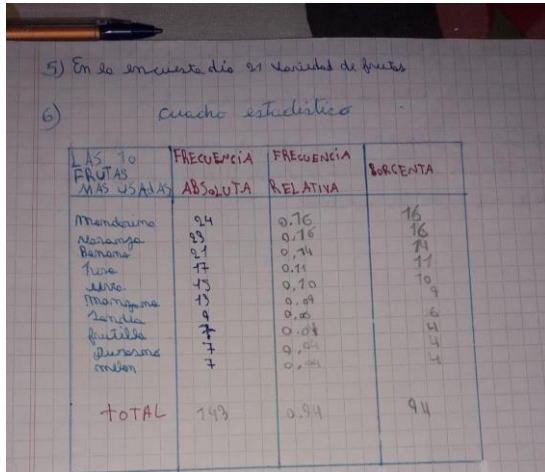 5) En la encuesta dio 21 variedad de frutas
6) Cuacho estadistico
LAS 10 FRUTAS MAS USADAS FRECUENCIA ABSOLUTA FRECUENCIA RELATIVA PORCENTA
mandarina 24 0.16 16
Naranja 23 0.16 16
Banana 21 0,14 14
17 0.11 11
uva 15 0,10 10
manzana 13 0.09 9
Sandia 9 0,06 6
frutilla 7 0.04 4
durasno 7 0,04 4
melon 7 0,04 4
TOTAL 143 0.94 94